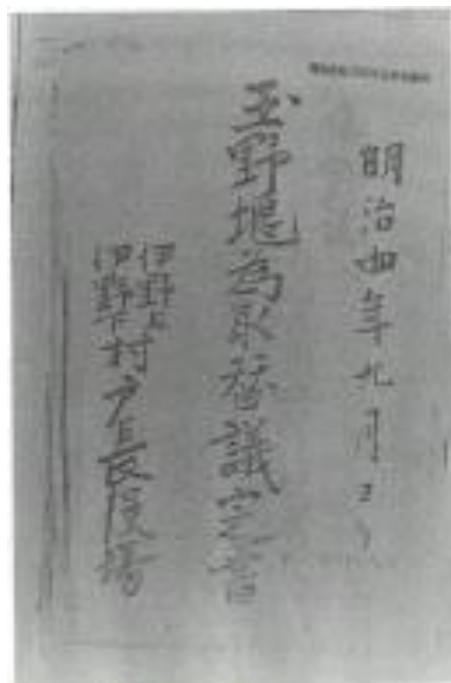 明治四年九月
玉野堰為取替議定書
伊野上
伊野下村戸長役場